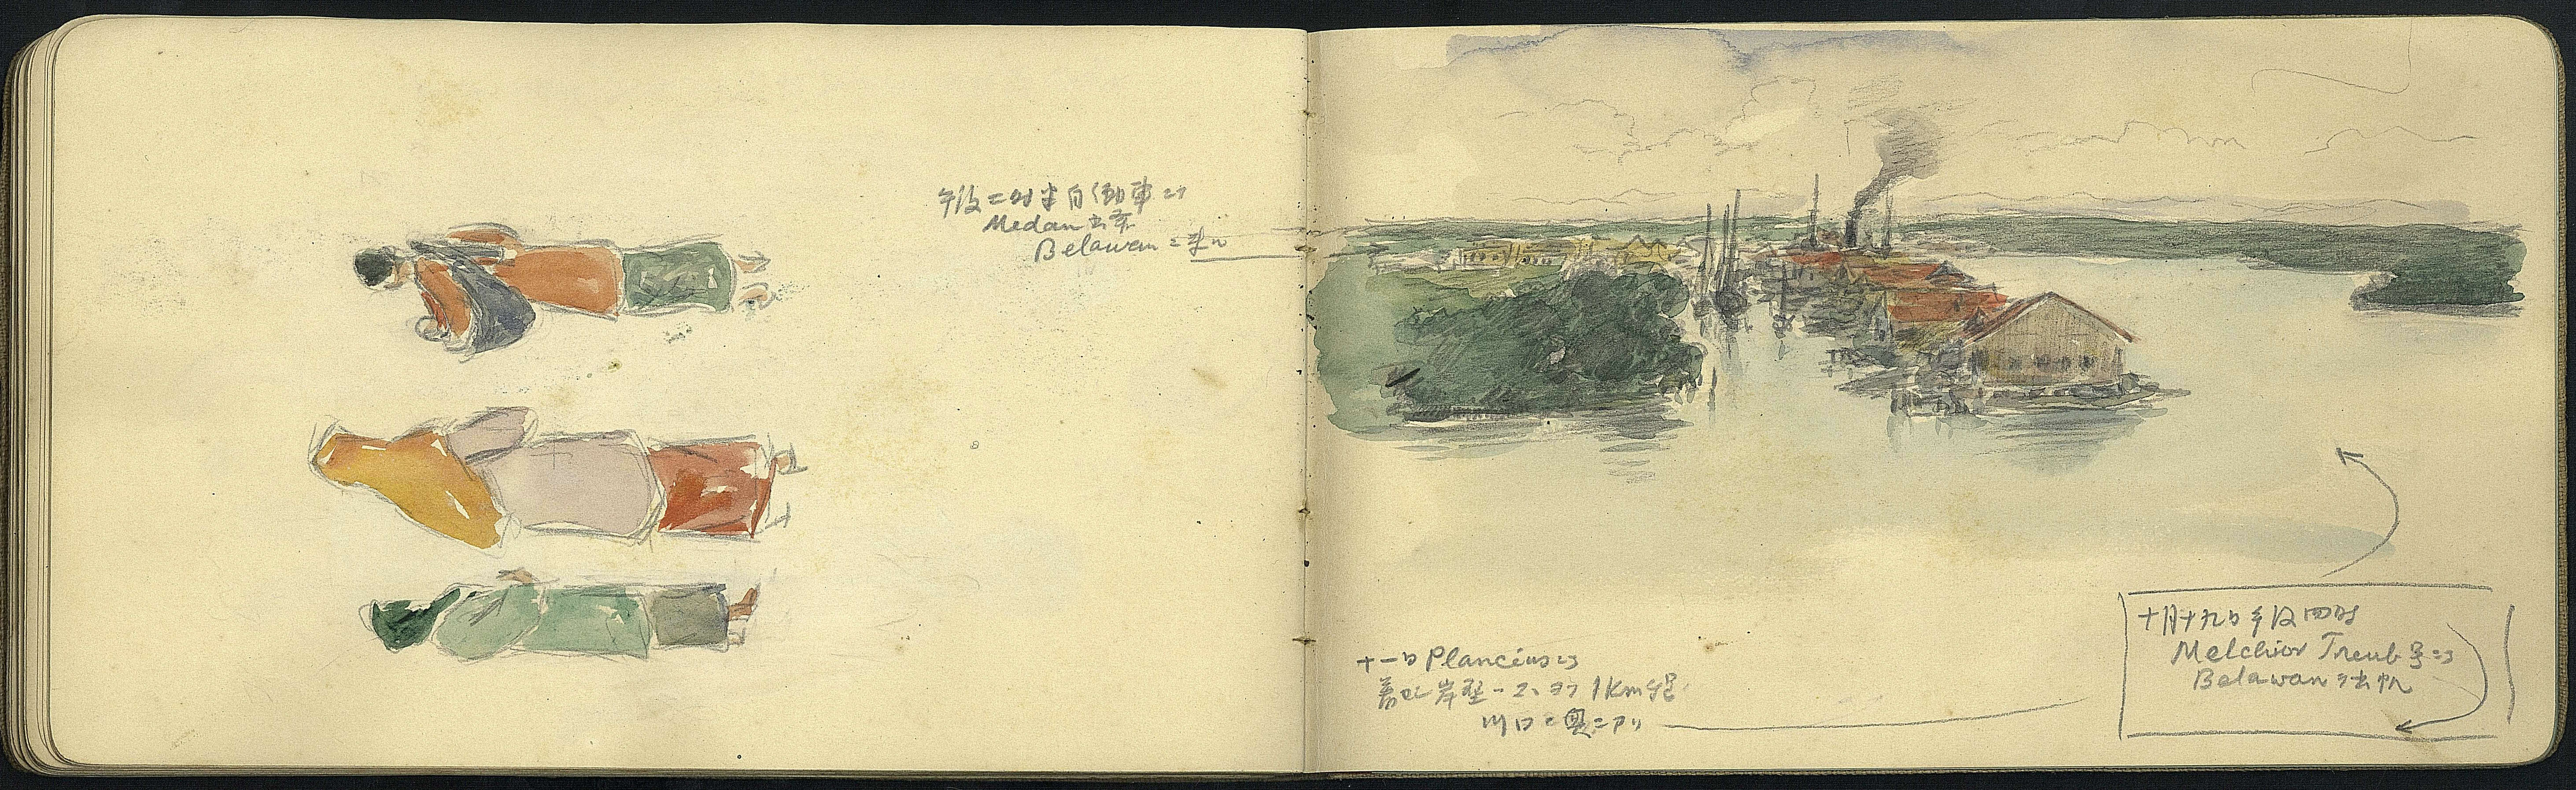 午後二時半自働車ニテ
Medan出発
Belawanニ来ル
十一日Planciusニテ
岸壁 1km
川口ニアリ
十月十九日午後四時
Melchior Treub号ニテ
Belawanヲ出帆